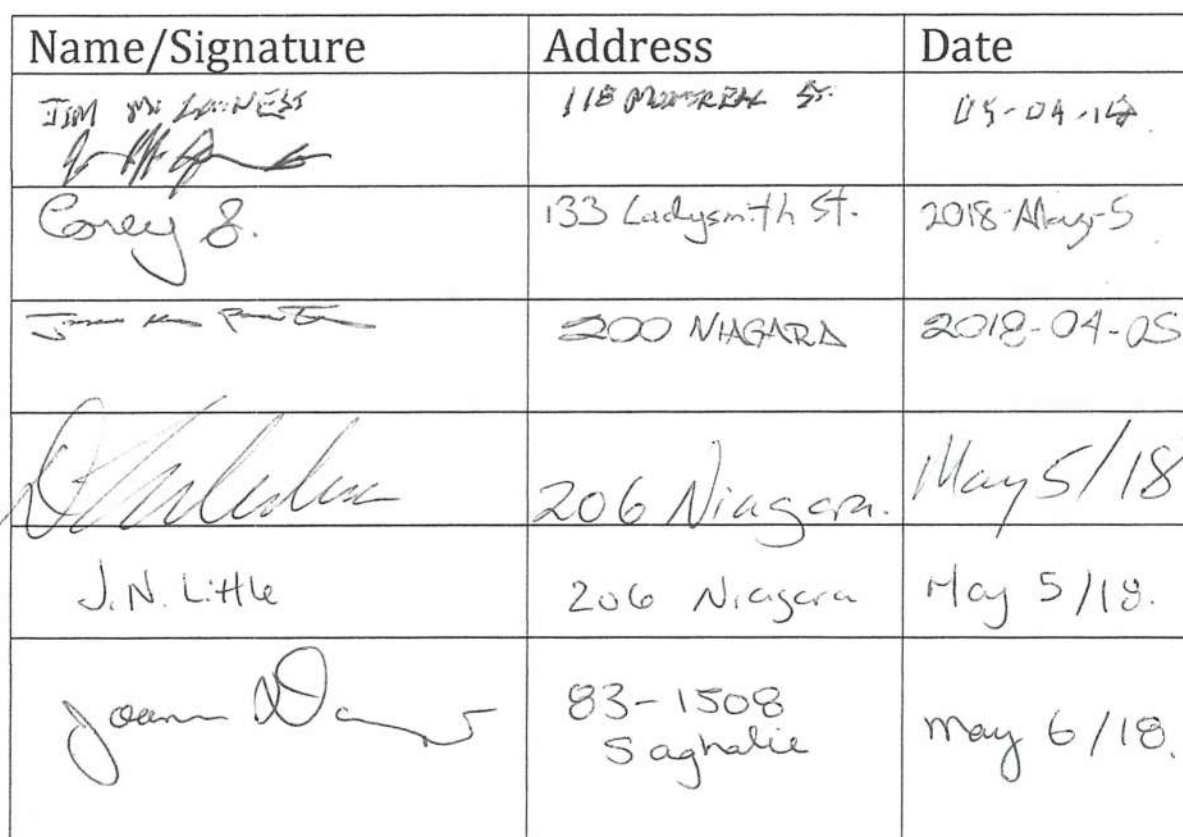 Name/Signature Address Date
JIM 118 MONTREAL St.
Corey S. 133 Ladysmith St. 2018-May-5
200 NIAGARA 2018-04-05
206 Niagara. May 5/18
J.N. Little 206 Niagara May 5/18.
Joann 83-1508 May 6/18.
Saghalie